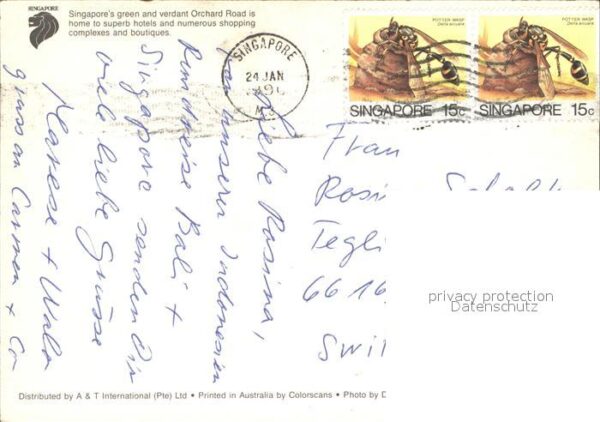 SINGAPORE
Singapore's green and verdant Orchard Road is
home to superb hotels and numerous shopping
complexes and boutiques.
SINGAPORE
24 JAN
POTTER WASP
Delta arcuata
SINGAPORE 15c
POTTER WASP
Delta arcuata
SINGAPORE 15c
Liebe Rosina,
von unserer Indonesien
Rundreise Bali +
Singapore senden Dir
viele liebe Grüsse
+ 
gruss an Carmen + Co
Frau
Rosi
Tegli
6616
Swi
privacy protection
Datenschutz
Distributed by A & T International (Pte) Ltd • Printed in Australia by Colorscans • Photo by D